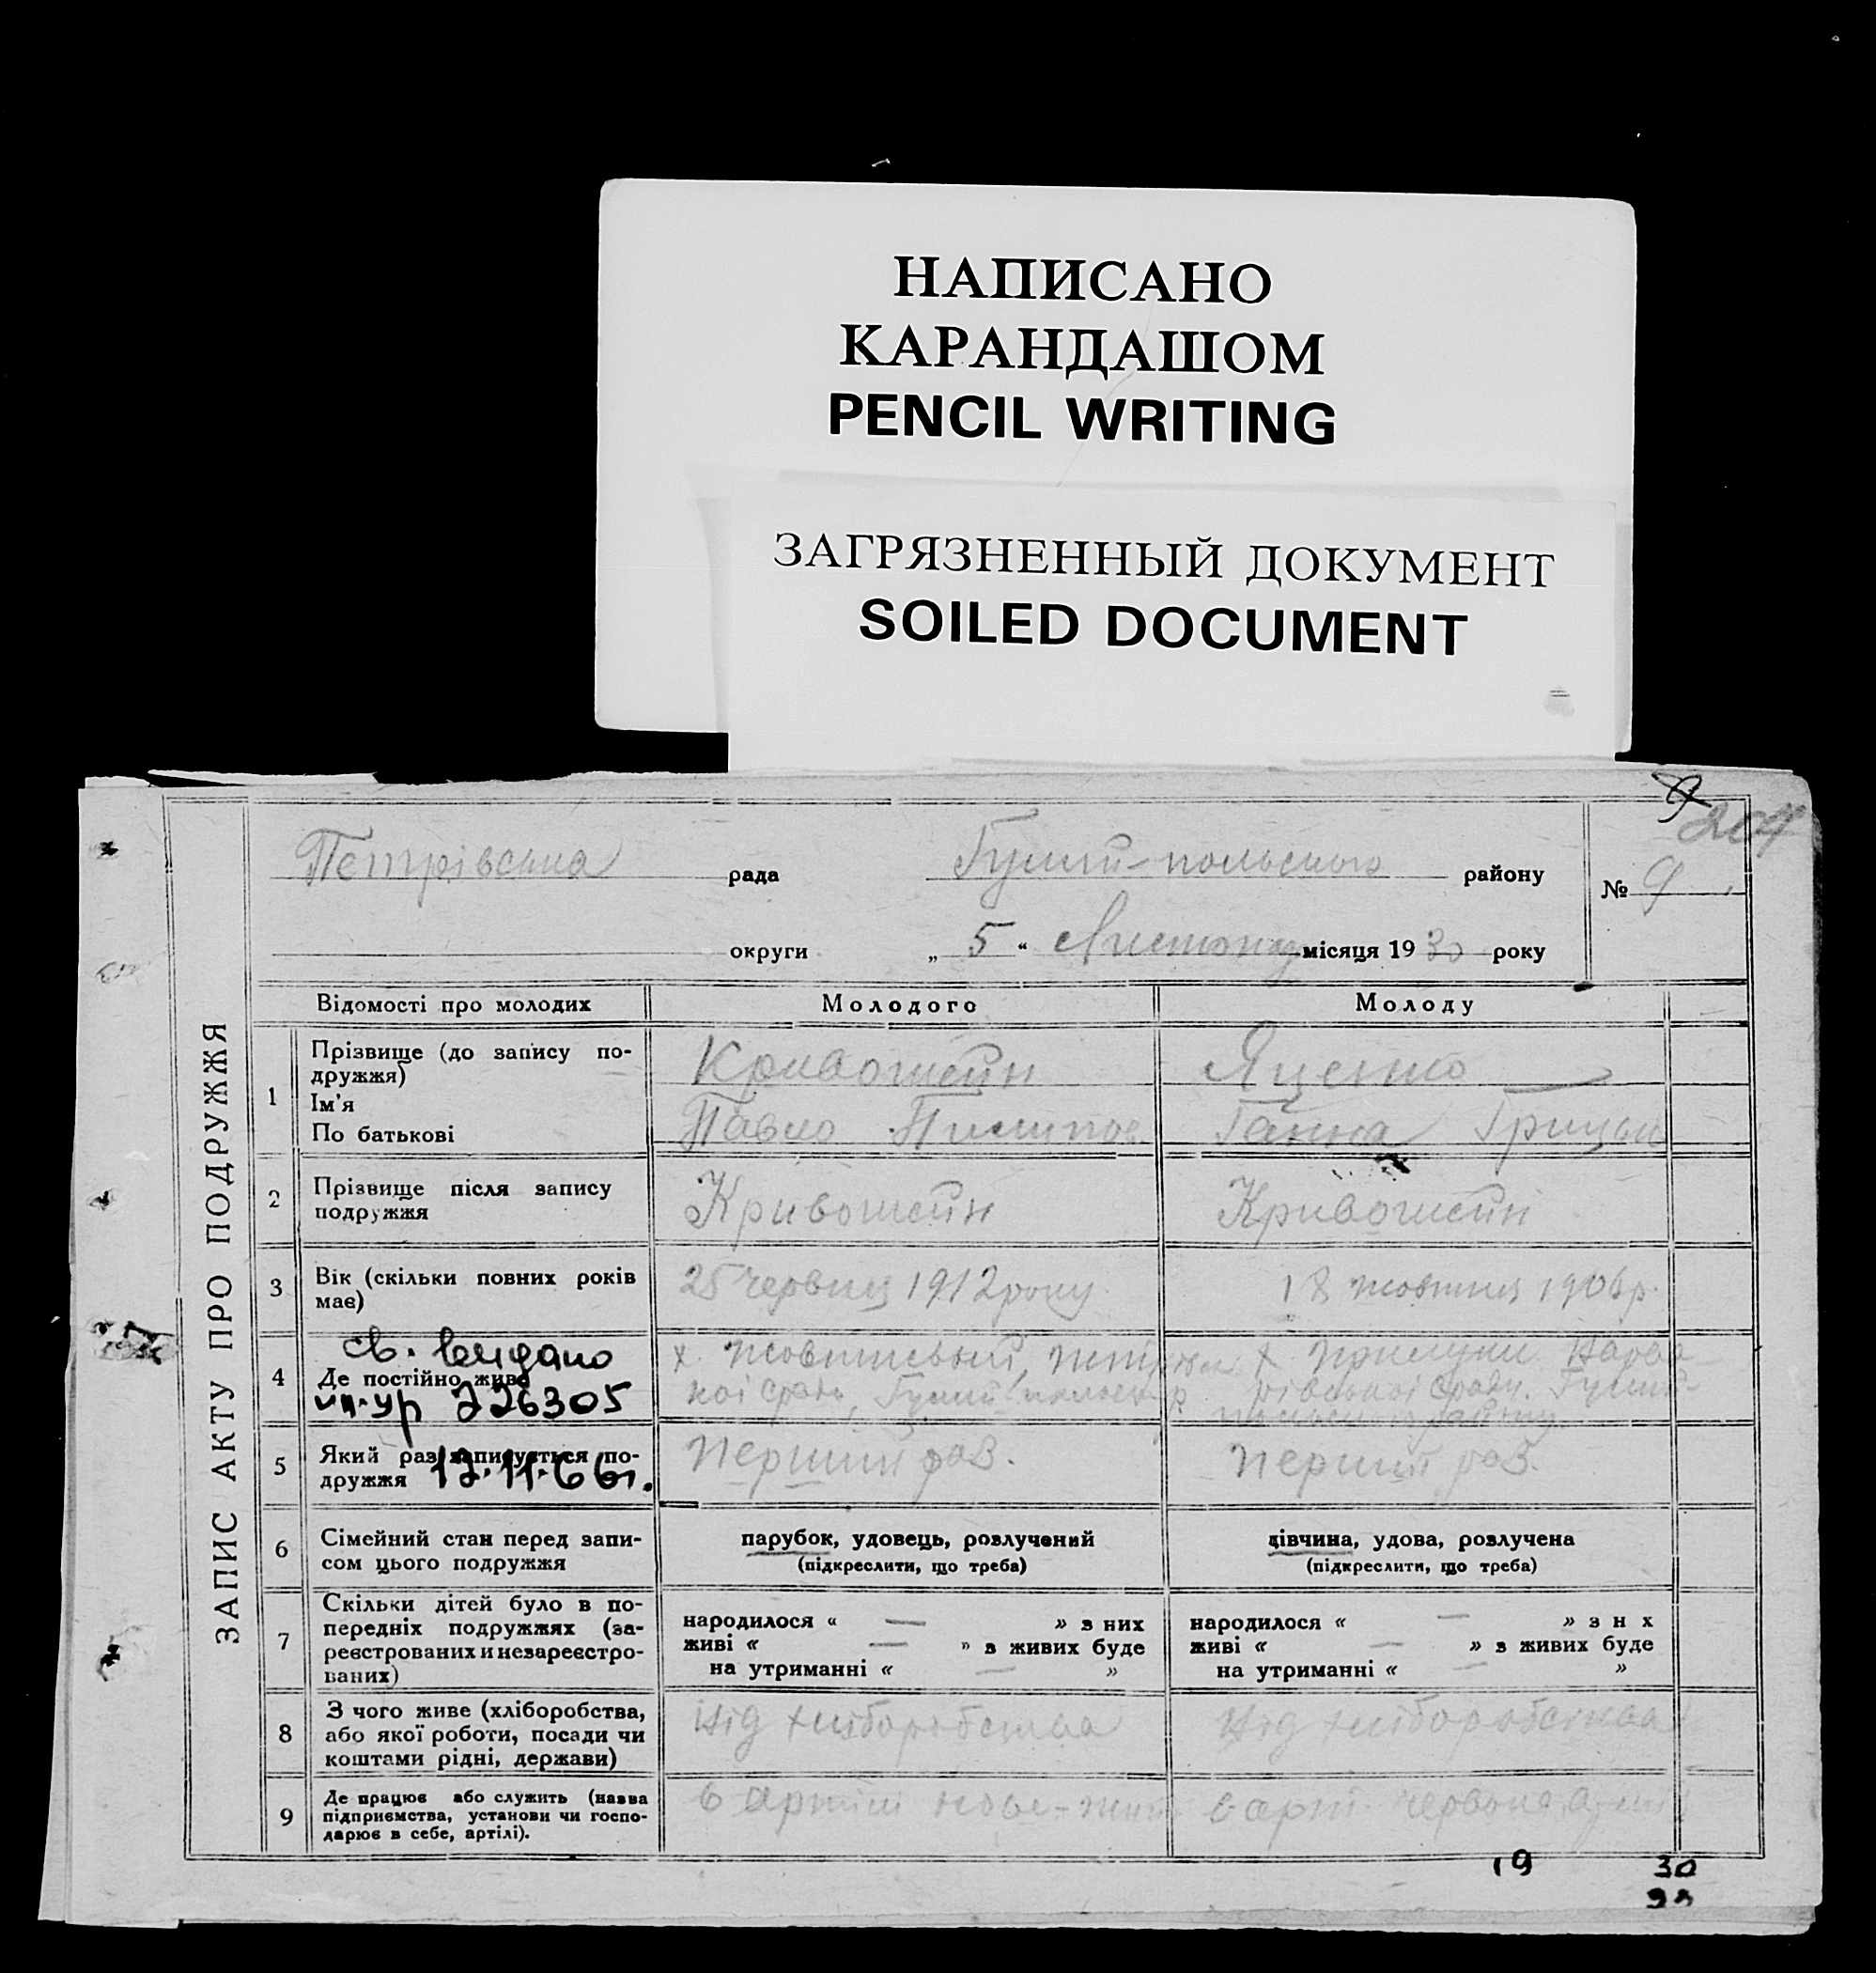 НАПИСАНО
КАРАНДАШОМ
PENCIL WRITING
ЗАГРЯЗНЕННЫЙ ДОКУМЕНТ
SOILED DOCUMENT
ЗАПИС АКТУ ПРО ПОДРУЖЖЯ
204
Петрівська рада Гуляй-польського району № 9
округи „ 5 “ Листопаду місяця 1930 року
Відомості про молодих Молодого Молоду
1 Прізвище (до запису по-
дружжя) Кривошейн Яценко
Ім'я
По батькові Павло Пилипов Ганна Грицьк
2 Прізвище після запису
подружжя Кривошейн Кривошейн
3 Вік (скільки повних років
має) 25 червня 1912 року 18 жовтня 1906 р.
св. видано
4 Де постійно живе
226305
х. Жовтневый, Петрівсь
кої сради, Гуляйпольськ р
х. сради. Гуляй-
5 Який раз записується по-
дружжя 12.11.66г.
Перший раз. Перший раз.
6 Сімейний стан перед запи-
сом цього подружжя
парубок, удовець, розлучений
(підкреслити, що треба)
дівчина, удова, розлучена
(підкреслити, що треба)
7 Скільки дітей було в по-
передніх подружжях (за-
реєстрованих и незареєстро-
ваних)
народилося « — » з них
живі « — » з живих буде
на утриманні « — »
народилося « — » з н х
живі « — » з живих буде
на утриманні « — »
8 З чого живе (хліборобства,
або якої роботи, посади чи
коштами рідні, держави)
Від хліборобства Від хліборобства
9 Де працює або служить (назва
підприємства, установи чи госпо-
дарює в себе, артілі).
в Артілі в арт. червона
19 30